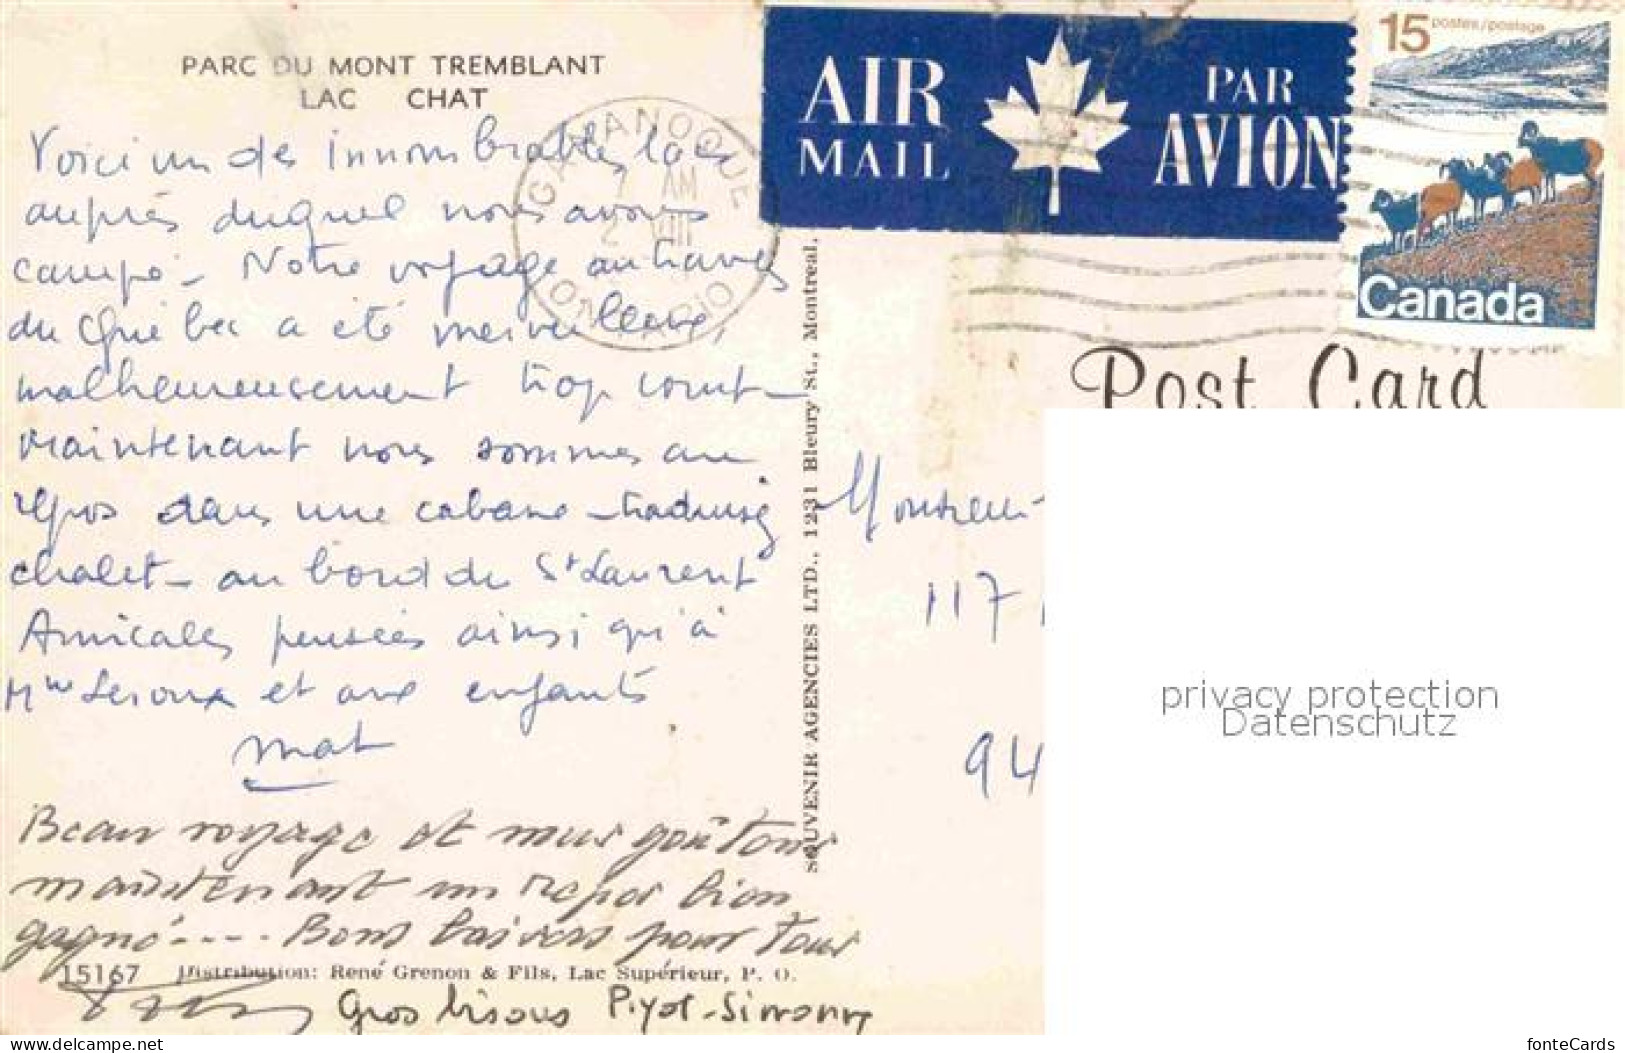 PARC DU MONT TREMBLANT
LAC CHAT
Voici un des innombrables lacs
auprès duquel nous avons
campé - Notre voyage au travers
du Québec a été merveilleux,
malheureusement trop court -
Maintenant nous sommes au
repos dans une cabane - traduisez
chalet - au bord du St Laurent
Amicales pensées ainsi qu'à
Mme Leroux et aux enfants
Mat
Beau voyage et nous goûtons
maintenant un repos bien
gagné ---- Bons baisers pour tous
15167 Distribution: René Grenon & Fils, Lac Supérieur, P. Q.
Gros bisous
SOUVENIR AGENCIES LTD., 1231 Bleury St., Montreal.
GANANOQUE
AM
VIII
ONTARIO
AIR MAIL
PAR AVION
15 postes/postage
Canada
Post Card
Monsieur
117
94
privacy protection
Datenschutz
www.delcampe.net
fonteCards